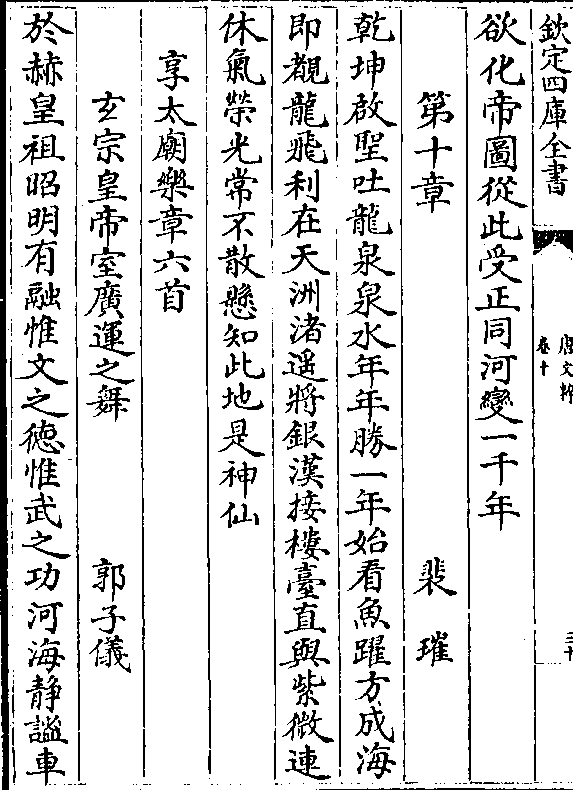 欽定四庫全書
唐文粹
卷十
三十
欲化帝圖從此受正同河變一千年
第十章　裴璀
乾坤啟聖吐龍泉泉水年年勝一年始看魚躍方成海
即覩龍飛利在天洲渚遥將銀漢接樓臺直與紫微連
休氣榮光常不散懸知此地是神仙
享太廟樂章六首
玄宗皇帝室廣運之舞　郭子儀
於赫皇祖昭明有融惟文之徳惟武之功河海静謐車